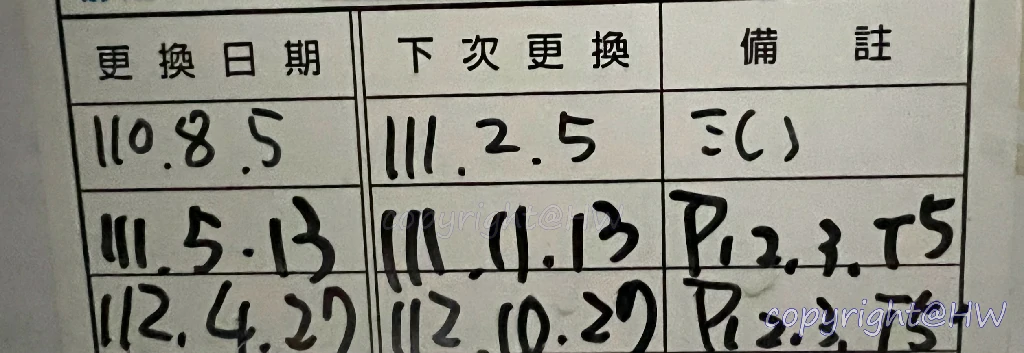 更換日期 下次更換 備註
110.8.5 111.2.5 三( )
111.5.13 111.11.13 P1 2.3.T5
112.4.27 112.10.27 P1 2.3.T5
copyright@HW
copyright@HW